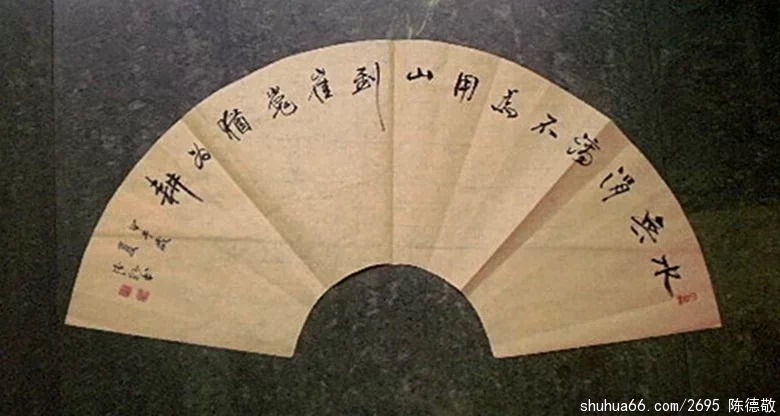 水無涓滴不為用山到崔嵬猶力耕
甲午歲
夏
shuhua66.com/2695 陈德敬